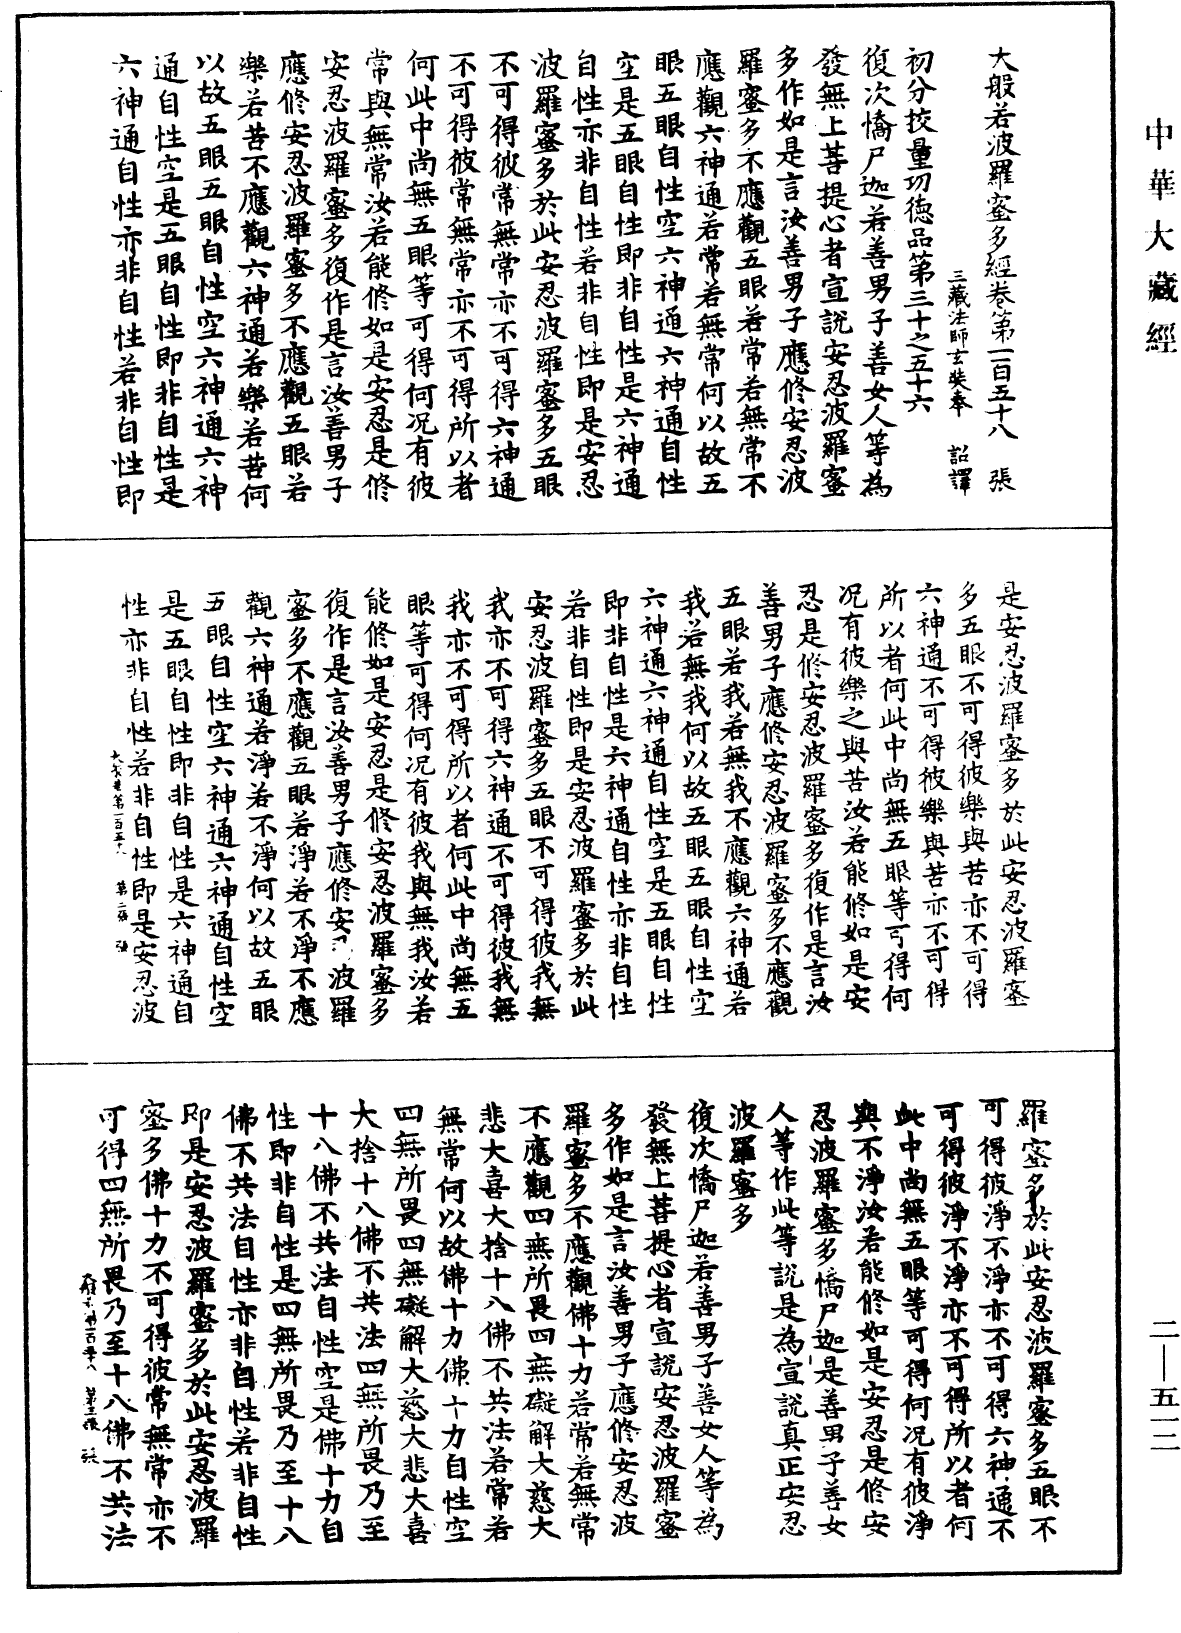 中華大藏經
大般若波羅蜜多經卷第一百五十八　張
三藏法師玄奘奉　詔譯
初分挍量功德品第三十之五十六
復次憍尸迦若善男子善女人等為
發無上菩提心者宣說安忍波羅蜜
多作如是言汝善男子應修安忍波
羅蜜多不應觀五眼若常若無常不
應觀六神通若常若無常何以故五
眼五眼自性空六神通六神通自性
空是五眼自性即非自性是六神通
自性亦非自性若非自性即是安忍
波羅蜜多於此安忍波羅蜜多五眼
不可得彼常無常亦不可得六神通
不可得彼常無常亦不可得所以者
何此中尚無五眼等可得何况有彼
常與無常汝若能修如是安忍是修
安忍波羅蜜多復作是言汝善男子
應修安忍波羅蜜多不應觀五眼若
樂若苦不應觀六神通若樂若苦何
以故五眼五眼自性空六神通六神
通自性空是五眼自性即非自性是
六神通自性亦非自性若非自性即
是安忍波羅蜜多於此安忍波羅蜜
多五眼不可得彼樂與苦亦不可得
六神通不可得彼樂與苦亦不可得
所以者何此中尚無五眼等可得何
况有彼樂之與苦汝若能修如是安
忍是修安忍波羅蜜多復作是言汝
善男子應修安忍波羅蜜多不應觀
五眼若我若無我不應觀六神通若
我若無我何以故五眼五眼自性空
六神通六神通自性空是五眼自性
即非自性是六神通自性亦非自性
若非自性即是安忍波羅蜜多於此
安忍波羅蜜多五眼不可得彼我無
我亦不可得六神通不可得彼我無
我亦不可得所以者何此中尚無五
眼等可得何况有彼我與無我汝若
能修如是安忍是修安忍波羅蜜多
復作是言汝善男子應修安忍波羅
蜜多不應觀五眼若淨若不淨不應
觀六神通若淨若不淨何以故五眼
五眼自性空六神通六神通自性空
是五眼自性即非自性是六神通自
性亦非自性若非自性即是安忍波
第二張　張
羅蜜多於此安忍波羅蜜多五眼不
可得彼淨不淨亦不可得六神通不
可得彼淨不淨亦不可得所以者何
此中尚無五眼等可得何况有彼淨
與不淨汝若能修如是安忍是修安
忍波羅蜜多憍尸迦是善男子善女
人等作此等說是為宣說真正安忍
波羅蜜多
復次憍尸迦若善男子善女人等為
發無上菩提心者宣說安忍波羅蜜
多作如是言汝善男子應修安忍波
羅蜜多不應觀佛十力若常若無常
不應觀四無所畏四無礙解大慈大
悲大喜大捨十八佛不共法若常若
無常何以故佛十力佛十力自性空
四無所畏四無礙解大慈大悲大喜
大捨十八佛不共法四無所畏乃至
十八佛不共法自性空是佛十力自
性即非自性是四無所畏乃至十八
佛不共法自性亦非自性若非自性
即是安忍波羅蜜多於此安忍波羅
蜜多佛十力不可得彼常無常亦不
可得四無所畏乃至十八佛不共法
第三張　張
二—五一二